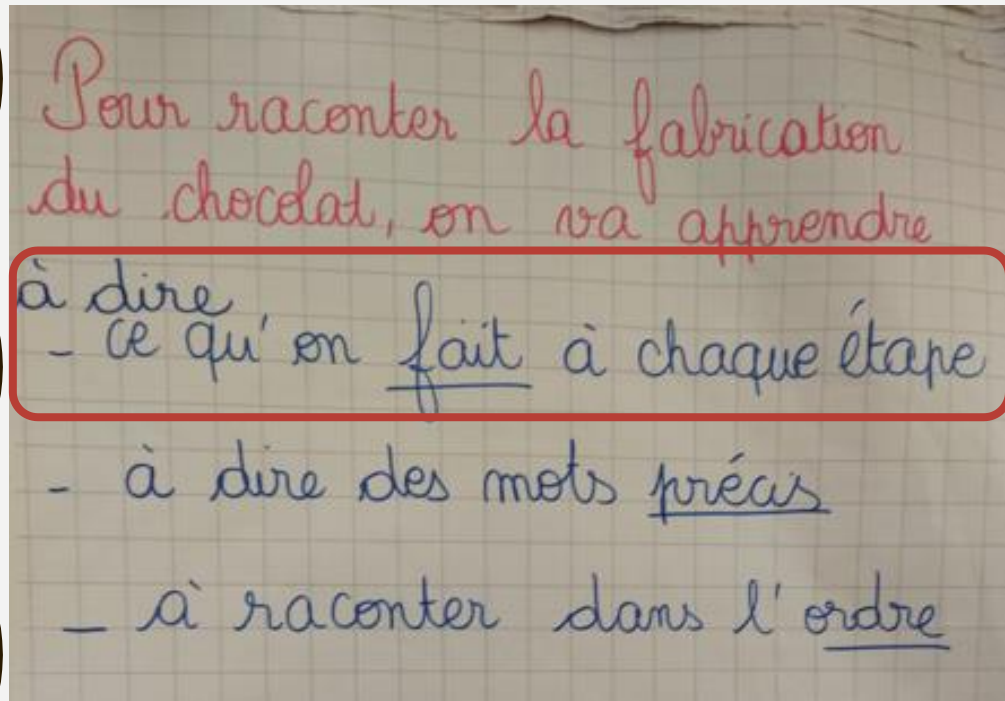 Pour raconter la fabrication
du chocolat, on va apprendre
à dire
- ce qu'on fait à chaque étape
- à dire des mots précis
- à raconter dans l'ordre